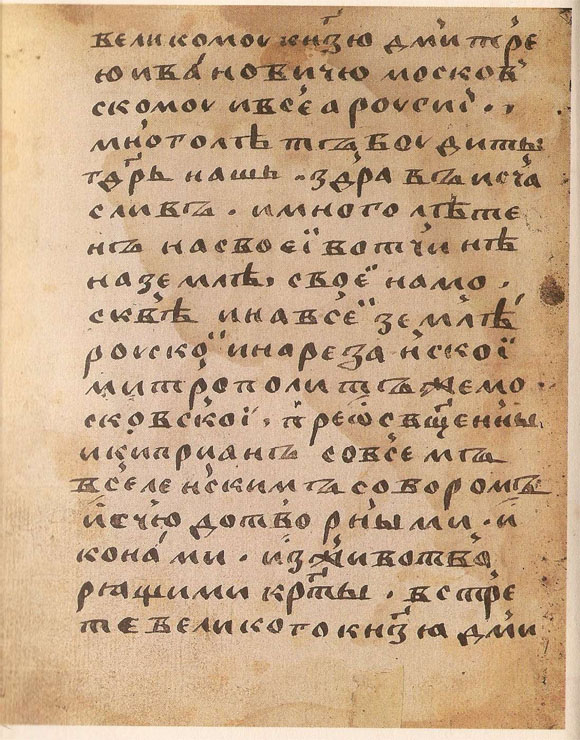 великомоу кнѧ҃зю дми́трѣе
ю ива́новичю москов
скомоу и всеа роусиї · ,
многолѣтъ боудиты
гд҃рь нашь · здра въ и сча́
сливъ · и многолѣте
нъ на своеї вотчинѣ
на землѣ, своеї на мо ·
сквѣ и на всеї землѣ́
роускоⷪ҇ и на резанскої
митрополитъ же мо ·
сковскої, преѡсвщ҃енны
и киприанъ со всемъ
вселенскимъ соборомъ
и с чю́дотворными · и
кона́ми · и з животво
рѧщими крт҃ы · встре
те великого кнѧ҃зѧ дми